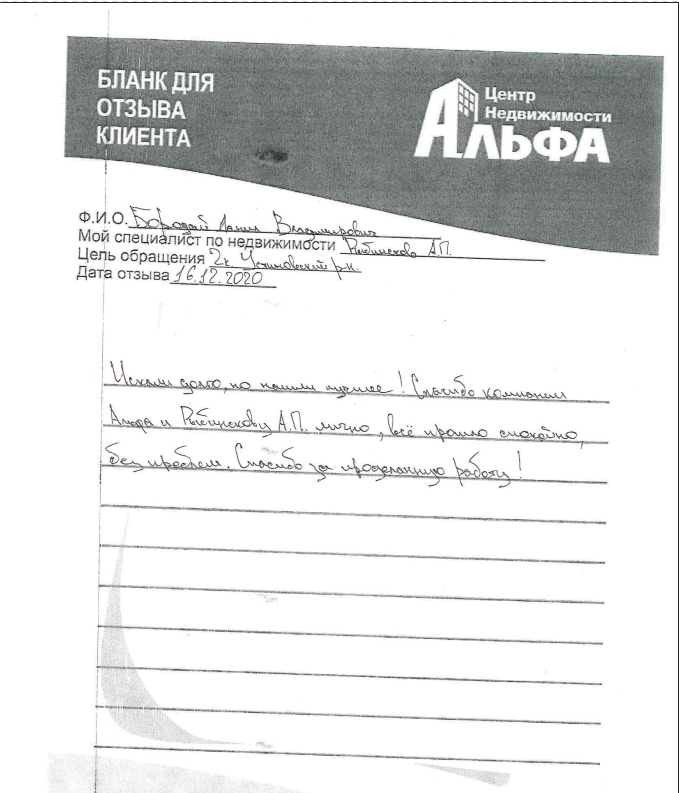 БЛАНК ДЛЯ
ОТЗЫВА
КЛИЕНТА
Центр
Недвижимости
АЛЬФА
Ф.И.О. Бородай Владимирович
Мой специалист по недвижимости А.П.
Цель обращения 2к. Устиновский р-н.
Дата отзыва 16.12.2020
Искали долго, но нашли лучшее! Спасибо компании
Альфа и А.П. лично, всё прошло спокойно,
без проблем. Спасибо за проделанную работу!